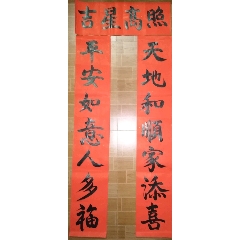 吉星高照
天地和順家添喜
平安如意人多福